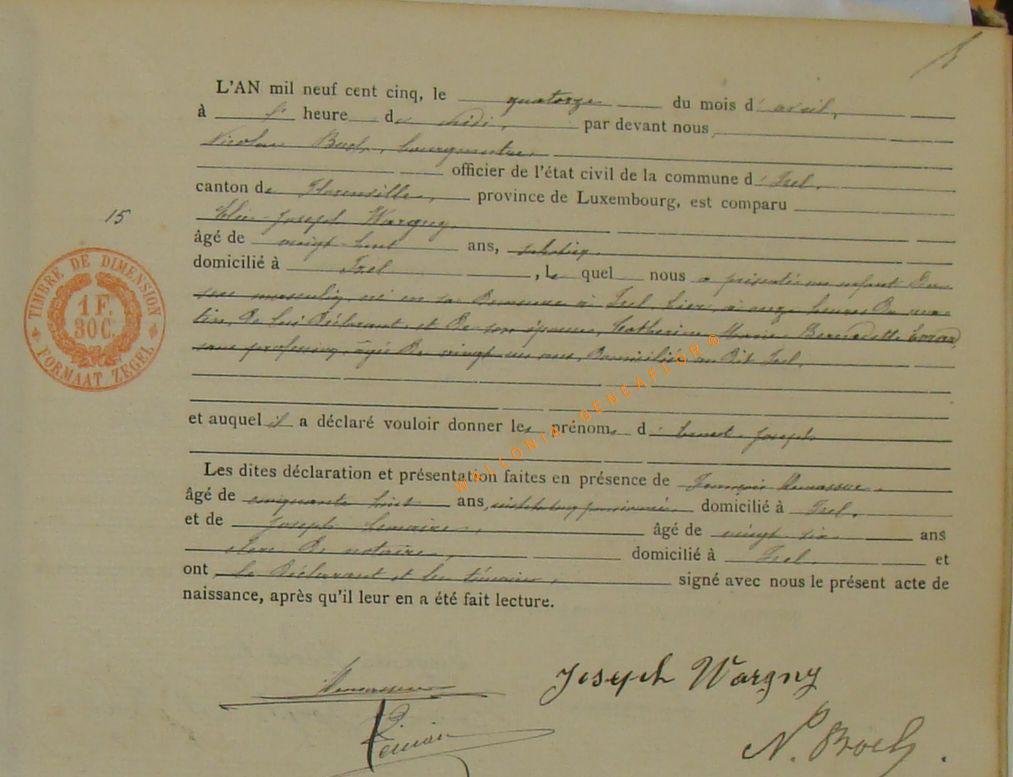 L'AN mil neuf cent cinq, le quatorze du mois d' avril,
à heure de midi, par devant nous
Nicolas Bourgmestre,
officier de l'état civil de la commune d' Izel,
canton de Florenville, province de Luxembourg, est comparu
15
Joseph Wargny,
âgé de vingt huit ans, sabotier,
domicilié à Izel , le quel nous a présenté un enfant du
sexe masculin, né en sa demeure à Izel hier, à onze heures du ma-
tin, de lui déclarant et de son épouse, Catherine Marie Bernadette
sans profession, âgée de vingt un ans, domiciliée au dit Izel.
et auquel il a déclaré vouloir donner les prénoms d' Ernest Joseph
Les dites déclaration et présentation faites en présence de François
âgé de cinquante huit ans, instituteur pensionné, domicilié à Izel,
et de Joseph Lemaire, âgé de vingt six ans
clerc de notaire, domicilié à Izel et
ont le déclarant et les témoins, signé avec nous le présent acte de
naissance, après qu'il leur en a été fait lecture.
Joseph Wargny
TIMBRE DE DIMENSION
1 F.
30 C.
FORMAAT ZEGEL
WALLONIA-GENEAFLOR ®